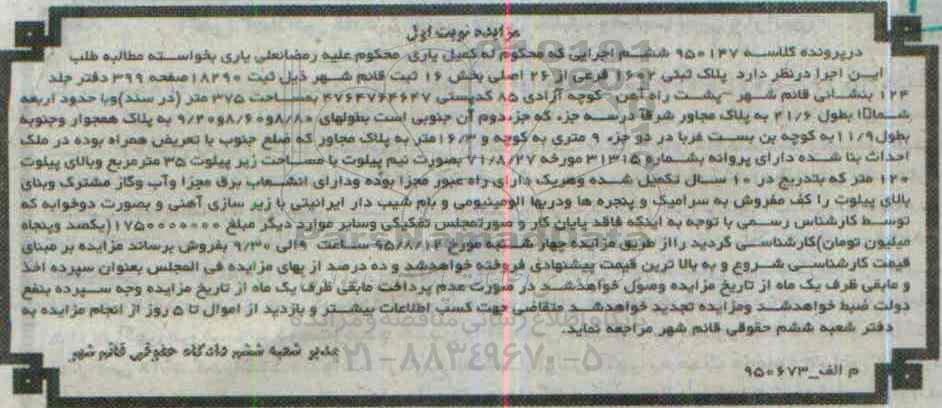 مزایده نوبت اول
درپرونده کلاسه ۹۵۰۱۴۷ ششم اجرایی که محکوم له کمیل یاری محکوم علیه رمضانعلی یاری بخواسته مطالبه طلب
این اجرا درنظر دارد پلاک ثبتی ۱۶۰۲ فرعی از ۲۶ اصلی بخش ۱۶ ثبت قائم شهر ذیل ثبت ۱۸۲۹۰ صفحه ۳۹۹ دفتر جلد
۱۲۴ بنشانی قائم شهر پشت راه آهن کوچه آزادی ۸۵ کدپستی ۴۷۶۴۷۶۴۶۴۷ بمساحت ۳۷۵ متر (در سند) وبا حدود اربعه
شمالا بطول ۲۱/۶ به پلاک مجاور شرقا درسه جزء که جزء دوم آن جنوبی است بطولهای ۸/۸۰و۸/۶۰و۹/۲۰ به پلاک همجوار وجنوبه
بطول ۱۱/۹ به کوچه بن بست غربا در دو جزء ۹ متری به کوچه و ۱۶/۳ متر به پلاک مجاور که ضلع جنوب با تعریض همراه بوده در ملک
احداث بنا شده دارای پروانه بشماره ۳۱۳۱۵ مورخه ۷۱/۸/۲۷ بصورت نیم پیلوت با مساحت زیر پیلوت ۳۵ مترمربع وبالای پیلوت
۱۲۰ متر که بتدریج در ۱۰ سال تکمیل شده وهریک دارای راه عبور مجزا بوده ودارای انشعاب برق مجزا وآب وگاز مشترک وبنای
بالای پیلوت را کف مفروش به سرامیک و پنجره ها ودربها الومینیومی و بام شیب دار ایرانیتی با زیر سازی آهنی و بصورت دوخوابه که
توسط کارشناس رسمی با توجه به اینکه فاقد پایان کار و صورتمجلس تفکیکی وسایر موارد دیگر مبلغ ۱۷۵۰۰۰۰۰۰۰ (یکصد وپنجاه
میلیون تومان) کارشناسی گردید رااز طریق مزایده چهار شنبه مورخ ساعت ۹ الی ۹/۳۰ بفروش برساند مزایده بر مبنای
قیمت کارشناسی شروع و به بالا ترین قیمت پیشنهادی فروخته خواهدشد و ده درصد از بهای مزایده فی المجلس بعنوان سپرده اخذ
و مابقی ظرف یک ماه از تاریخ مزایده وصول خواهدشد در صورت عدم پرداخت مابقی ظرف یک ماه از تاریخ مزایده وجه سپرده بنفع
دولت ضبط خواهدشد ومزایده تجدید خواهدشد متقاضی جهت کسب اطلاعات بیشتر و بازدید از اموال تا ۵ روز از انجام مزایده به
دفتر شعبه ششم حقوقی قائم شهر مراجعه نماید.
مدیر شعبه ششم دادگاه حقوقی قائم شهر
م الف_۹۵۰۶۷۳
اطلاع رسانی مناقصه و مزایده
۰۲۱-۸۸۳۴۹۶۷۰-۵